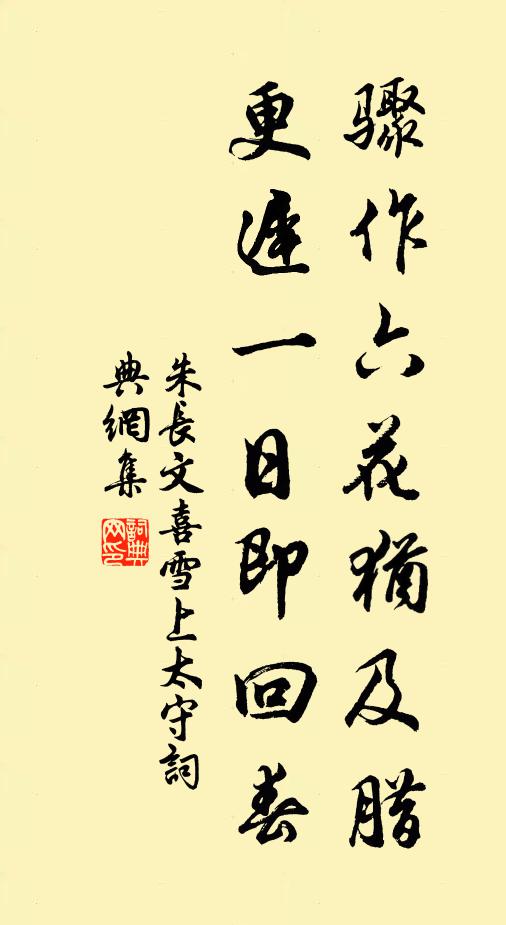 驟作六花猶及腊
更遲一日即回春
朱長文喜雪上太守詞
典網集
詞典網印